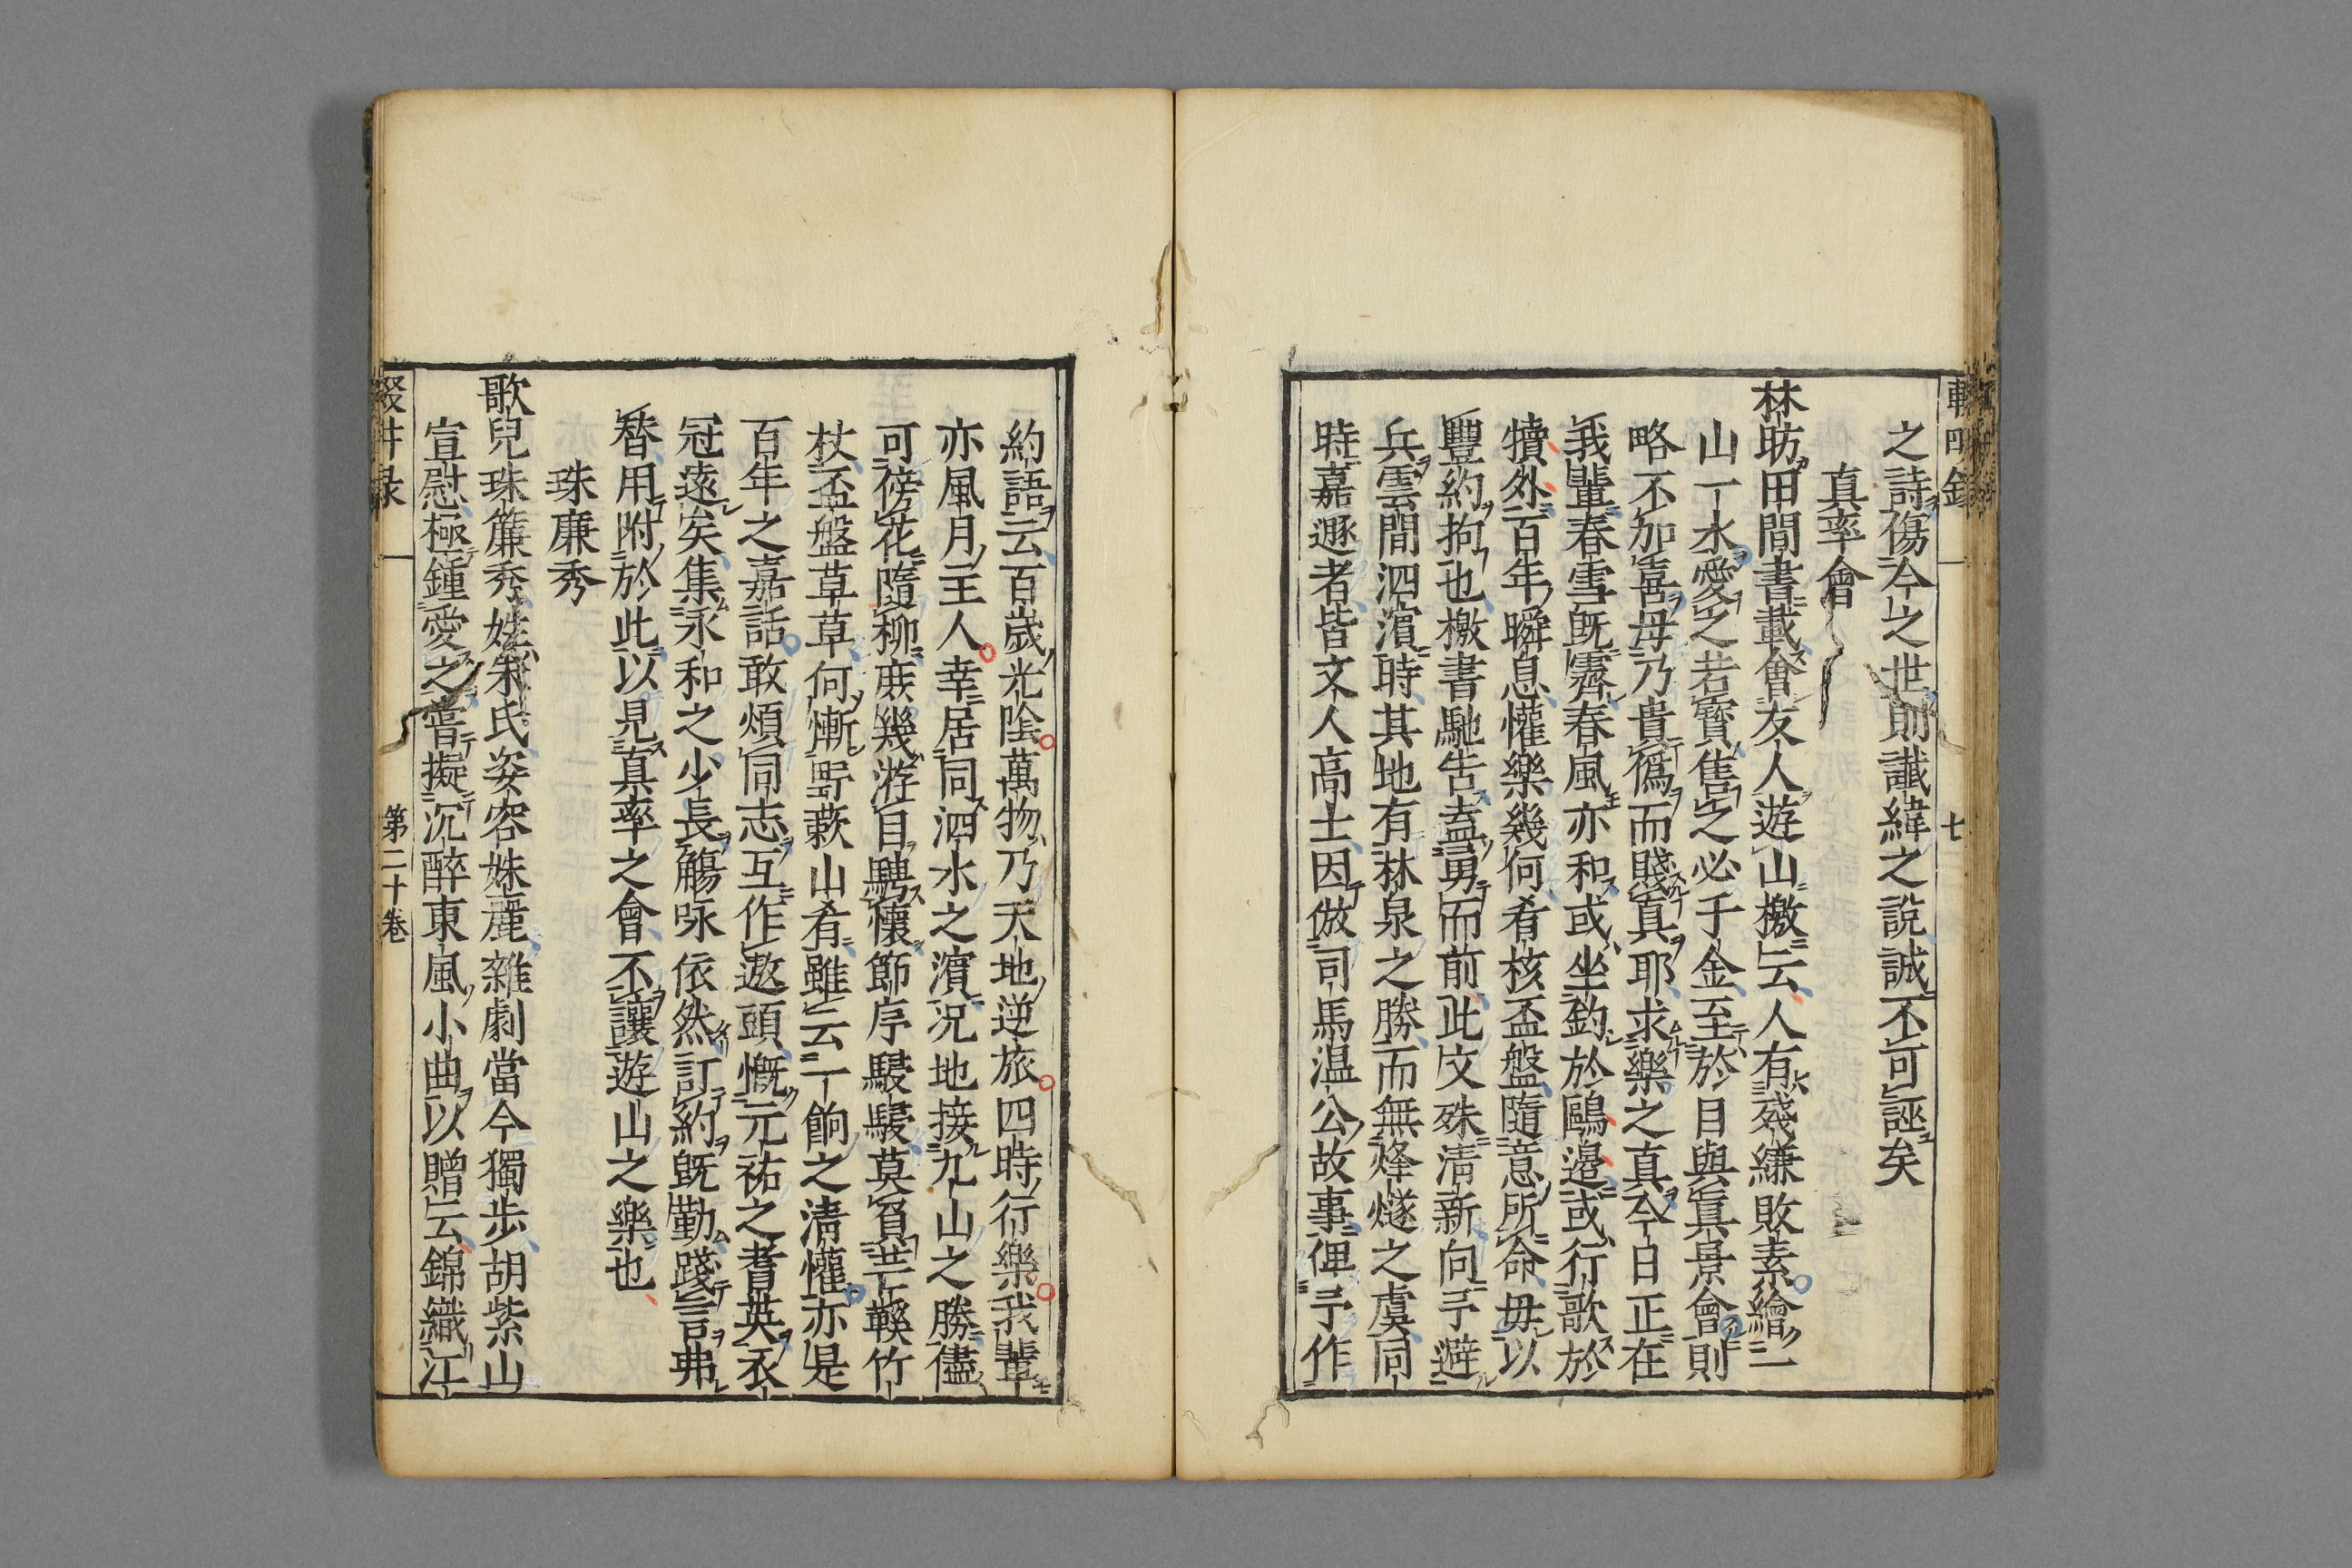 輟畊錄 七
之詩傷今之世則讖緯之說誠不可誣矣
真率會
林昉田間書載會友人遊山檄云人有殘縑敗素繪一
山一水愛之若寳售之必千金至於目與眞景會則
略不加喜毋乃貴僞而賤眞耶求樂之真今日正在
我輩春雪旣霽春風亦和或坐釣於鷗邊或行歌於
犢外百年瞬息懽樂幾何肴核盃盤隨意所命毋以
豐約拘也檄書馳告盍勇而前此文殊清新向予避
兵雲間泗濱時其地有林泉之勝而無烽燧之虞同
時嘉遯者皆文人高士因倣司馬温公故事俾予作
約語云百歲光陰萬物乃天地逆旅四時行樂我輩
亦風月主人幸居同泗水之濱况地接九山之勝儘
可傍花隨柳庶幾游目騁懷節序駸駸莫負芒鞵竹
杖盃盤草草何慚野蔌山肴雖云一餉之清懽亦是
百年之嘉話敢煩同志互作遨頭慨元祐之耆英衣
冠遠矣集永和之少長觴咏依然訂約旣勤踐言弗
替用附於此以見真率之會不讓遊山之樂也
珠廉秀
歌兒珠簾秀姓朱氏姿容姝麗雜劇當今獨步胡紫山
宣慰極鍾愛之嘗擬沉醉東風小曲以贈云錦織江
輟畊錄 第二十巻